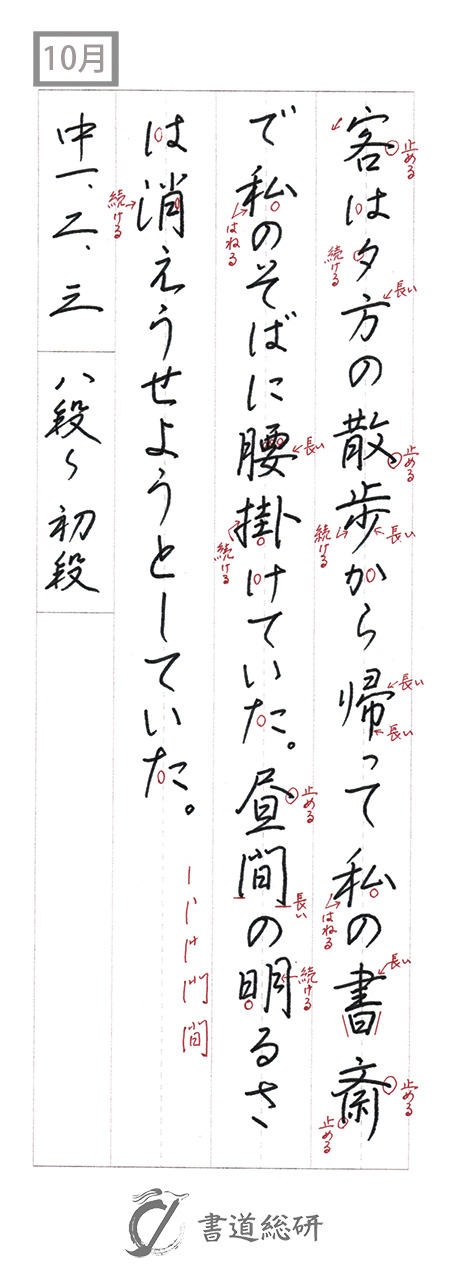 10月
客は夕方の散歩から帰って私の書斎
で私のそばに腰掛けていた。昼間の明るさ
は消えうせようとしていた。
中一、二、三
八段〜初段
止める
続ける
長い
止める
長い
続ける
長い
長い
はねる
長い
止める
止める
はねる
長い
続ける
止める
長い
続ける
続ける
間
書道総研